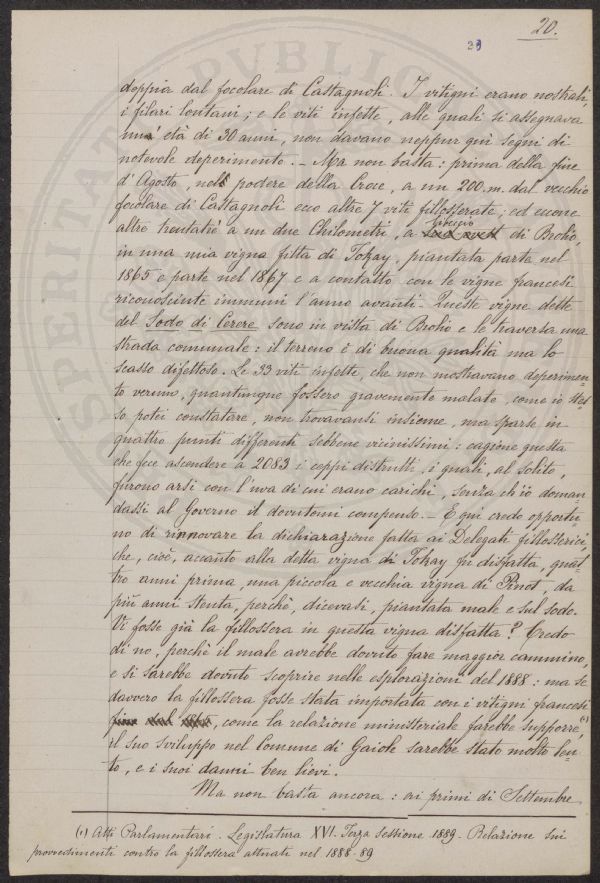 20.
29
doppia dal focolare di Castagnoli. I vitigni erano nostrali,
i filari lontani; e le viti infette, alle quali si assegnava
un' età di 30 anni, non davano neppur qui segni di
notevole deperimento. – Ma non basta: prima della fine
d'Agosto, nel podere della Croce, a un 200 m. dal vecchio
focolare di Castagnoli ecco altre 7 viti fillosserate; ed eccone
altre trentatrè a un due Chilometri, a libeccio di Brolio,
in una mia vigna fitta di Tokay, piantata parte nel
1865 e parte nel 1867 e a contatto con le vigne francesi
riconosciute immuni l'anno avanti. Queste vigne dette
del Sodo di Cerere sono in vista di Brolio e le traversa una
strada comunale: il terreno è di buona qualità ma lo
scasso difettoso. Le 33 viti infette, che non mostravano deperimen-
to veruno, quantunque fossero gravemente malate, come io stes-
so potei constatare, non trovavansi insieme, ma sparse in
quattro punti differenti sebbene vicinissimi: cagione questa
che fece ascendere a 2083 i ceppi distrutti, i quali, al solito,
furono arsi con l'uva di cui erano carichi, senza ch'io doman
dassi al Governo il dovutomi compenso. – E qui credo opportu-
no di rinnovare la dichiarazione fatta ai Delegati fillosserici,
che, cioè, accanto alla detta vigna di Tokay fu disfatta, quat-
tro anni prima, una piccola e vecchia vigna di Pinot, da
più anni stenta, perchè, dicevasi, piantata male e sul sodo.
Vi fosse già la fillossera in questa vigna disfatta? Credo
di no, perchè il male avrebbe dovuto fare maggior cammino,
e si sarebbe dovuto scoprire nelle esplorazioni del 1888: ma se
davvero la fillossera fosse stata importata con i vitigni francesi
, come la relazione ministeriale farebbe supporre, (1)
il suo sviluppo nel Comune di Gaiole sarebbe stato molto len-
to, e i suoi danni ben lievi.
Ma non basta ancora: ai primi di Settembre
(1) Atti Parlamentari. Legislatura XVI. Terza Sessione 1889. Relazione sui
provvedimenti contro la fillossera attuati nel 1888-89